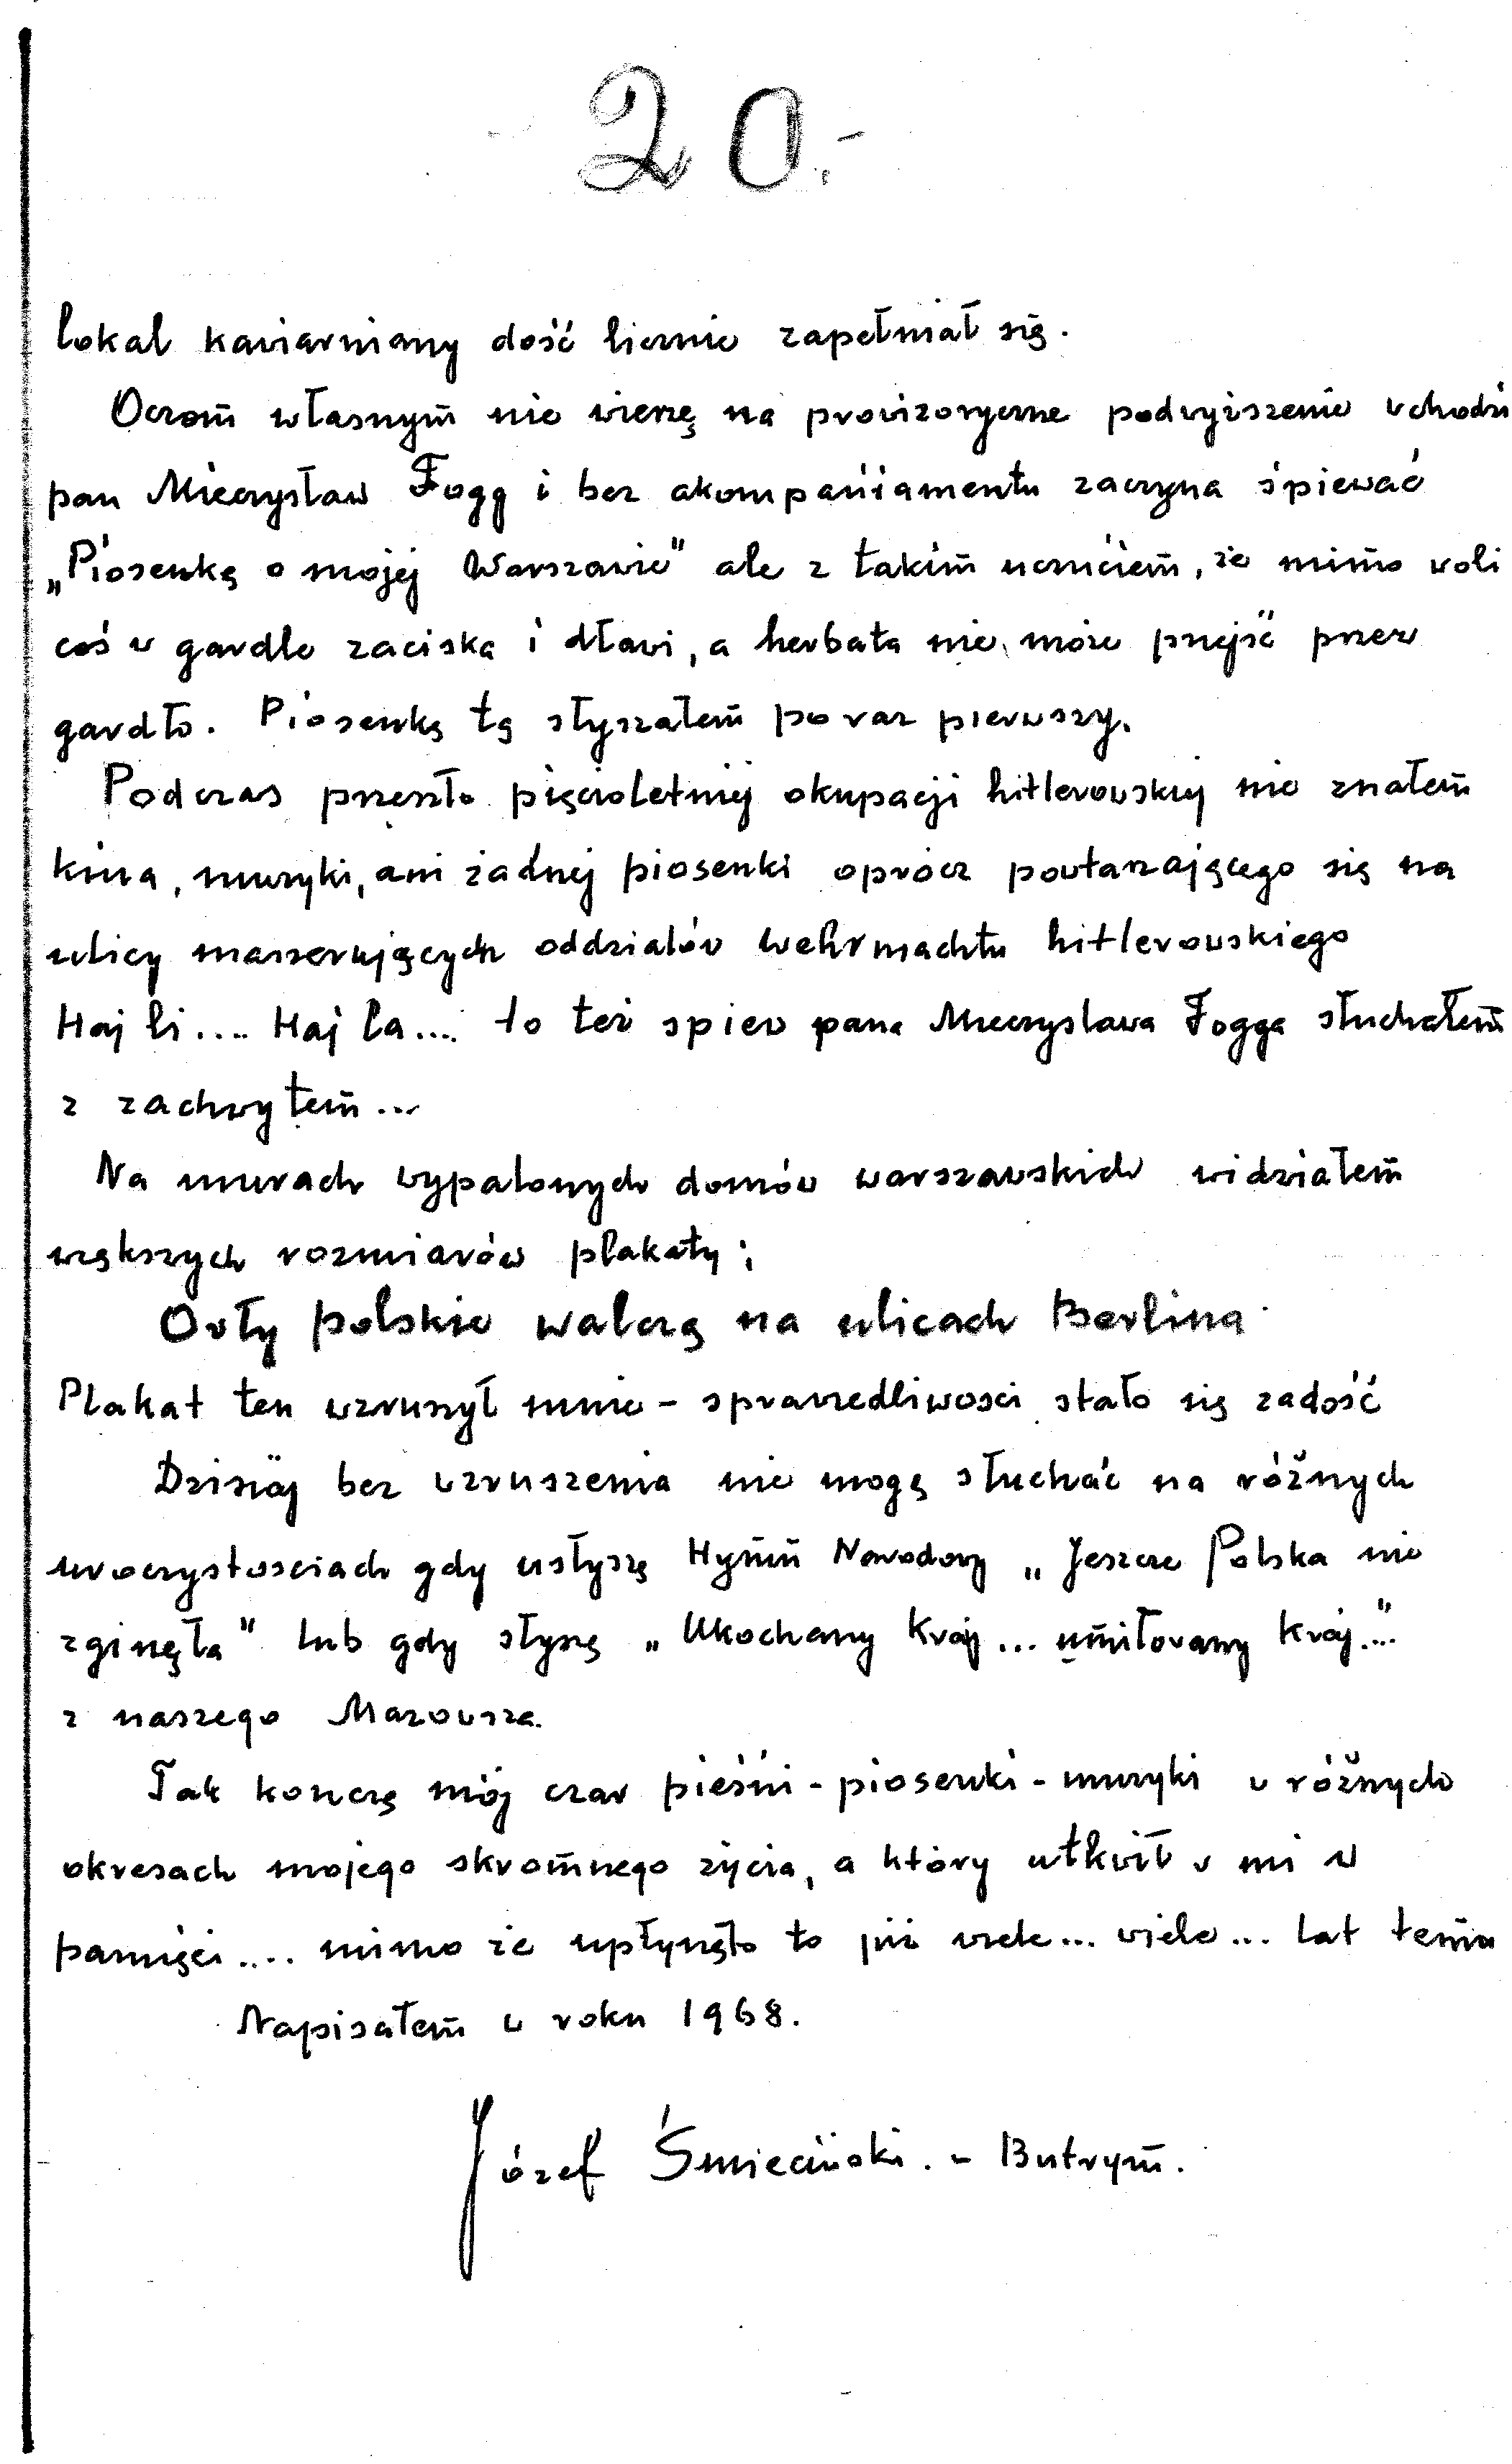 20.-
lokal kawiarniany dość licznie zapełniał się.
Oczom własnym nie wierzę na prowizoryczne podwyższenie wchodzi
pan Mieczysław Fogg i bez akompaniamentu zaczyna śpiewać
„Piosenkę o mojej Warszawie" ale z takim uczuciem, że mimo woli
coś w gardle zaciska i dławi, a herbata nie może przejść przez
gardło. Piosenkę tę słyszałem po raz pierwszy.
Podczas przeszło pięcioletniej okupacji hitlerowskiej nie znałem
kina, muzyki, ani żadnej piosenki oprócz powtarzającego się na
ulicy maszerujących oddziałów Wehrmachtu hitlerowskiego
Haj li.... Haj la.... to też spiew pana Mieczyslawa Fogga słuchałem
z zachwytem...
Na murach wypalonych domów warszawskich widziałem
większych rozmiarów plakaty;
Orły polskie walczą na ulicach Berlina
Plakat ten wzruszył mnie - sprawiedliwosci stało się zadość
Dzisiaj bez wzruszenia nie mogę słuchać na różnych
uroczystosciach gdy usłyszę Hymn Narodowy „Jeszcze Polska nie
zginęła" lub gdy słyszę „Ukochany Kraj... umiłowany Kraj..."
z naszego Mazowsza.
Tak konczę mój czar pieśni - piosenki - muzyki w różnych
okresach mojego skromnego życia, a który utkwił w mi w
pamięci.... mimo że upłynęło to już wiele... wiele... lat temu
Napisałem w roku 1968.
Józef Śmieciński. - Butrym.